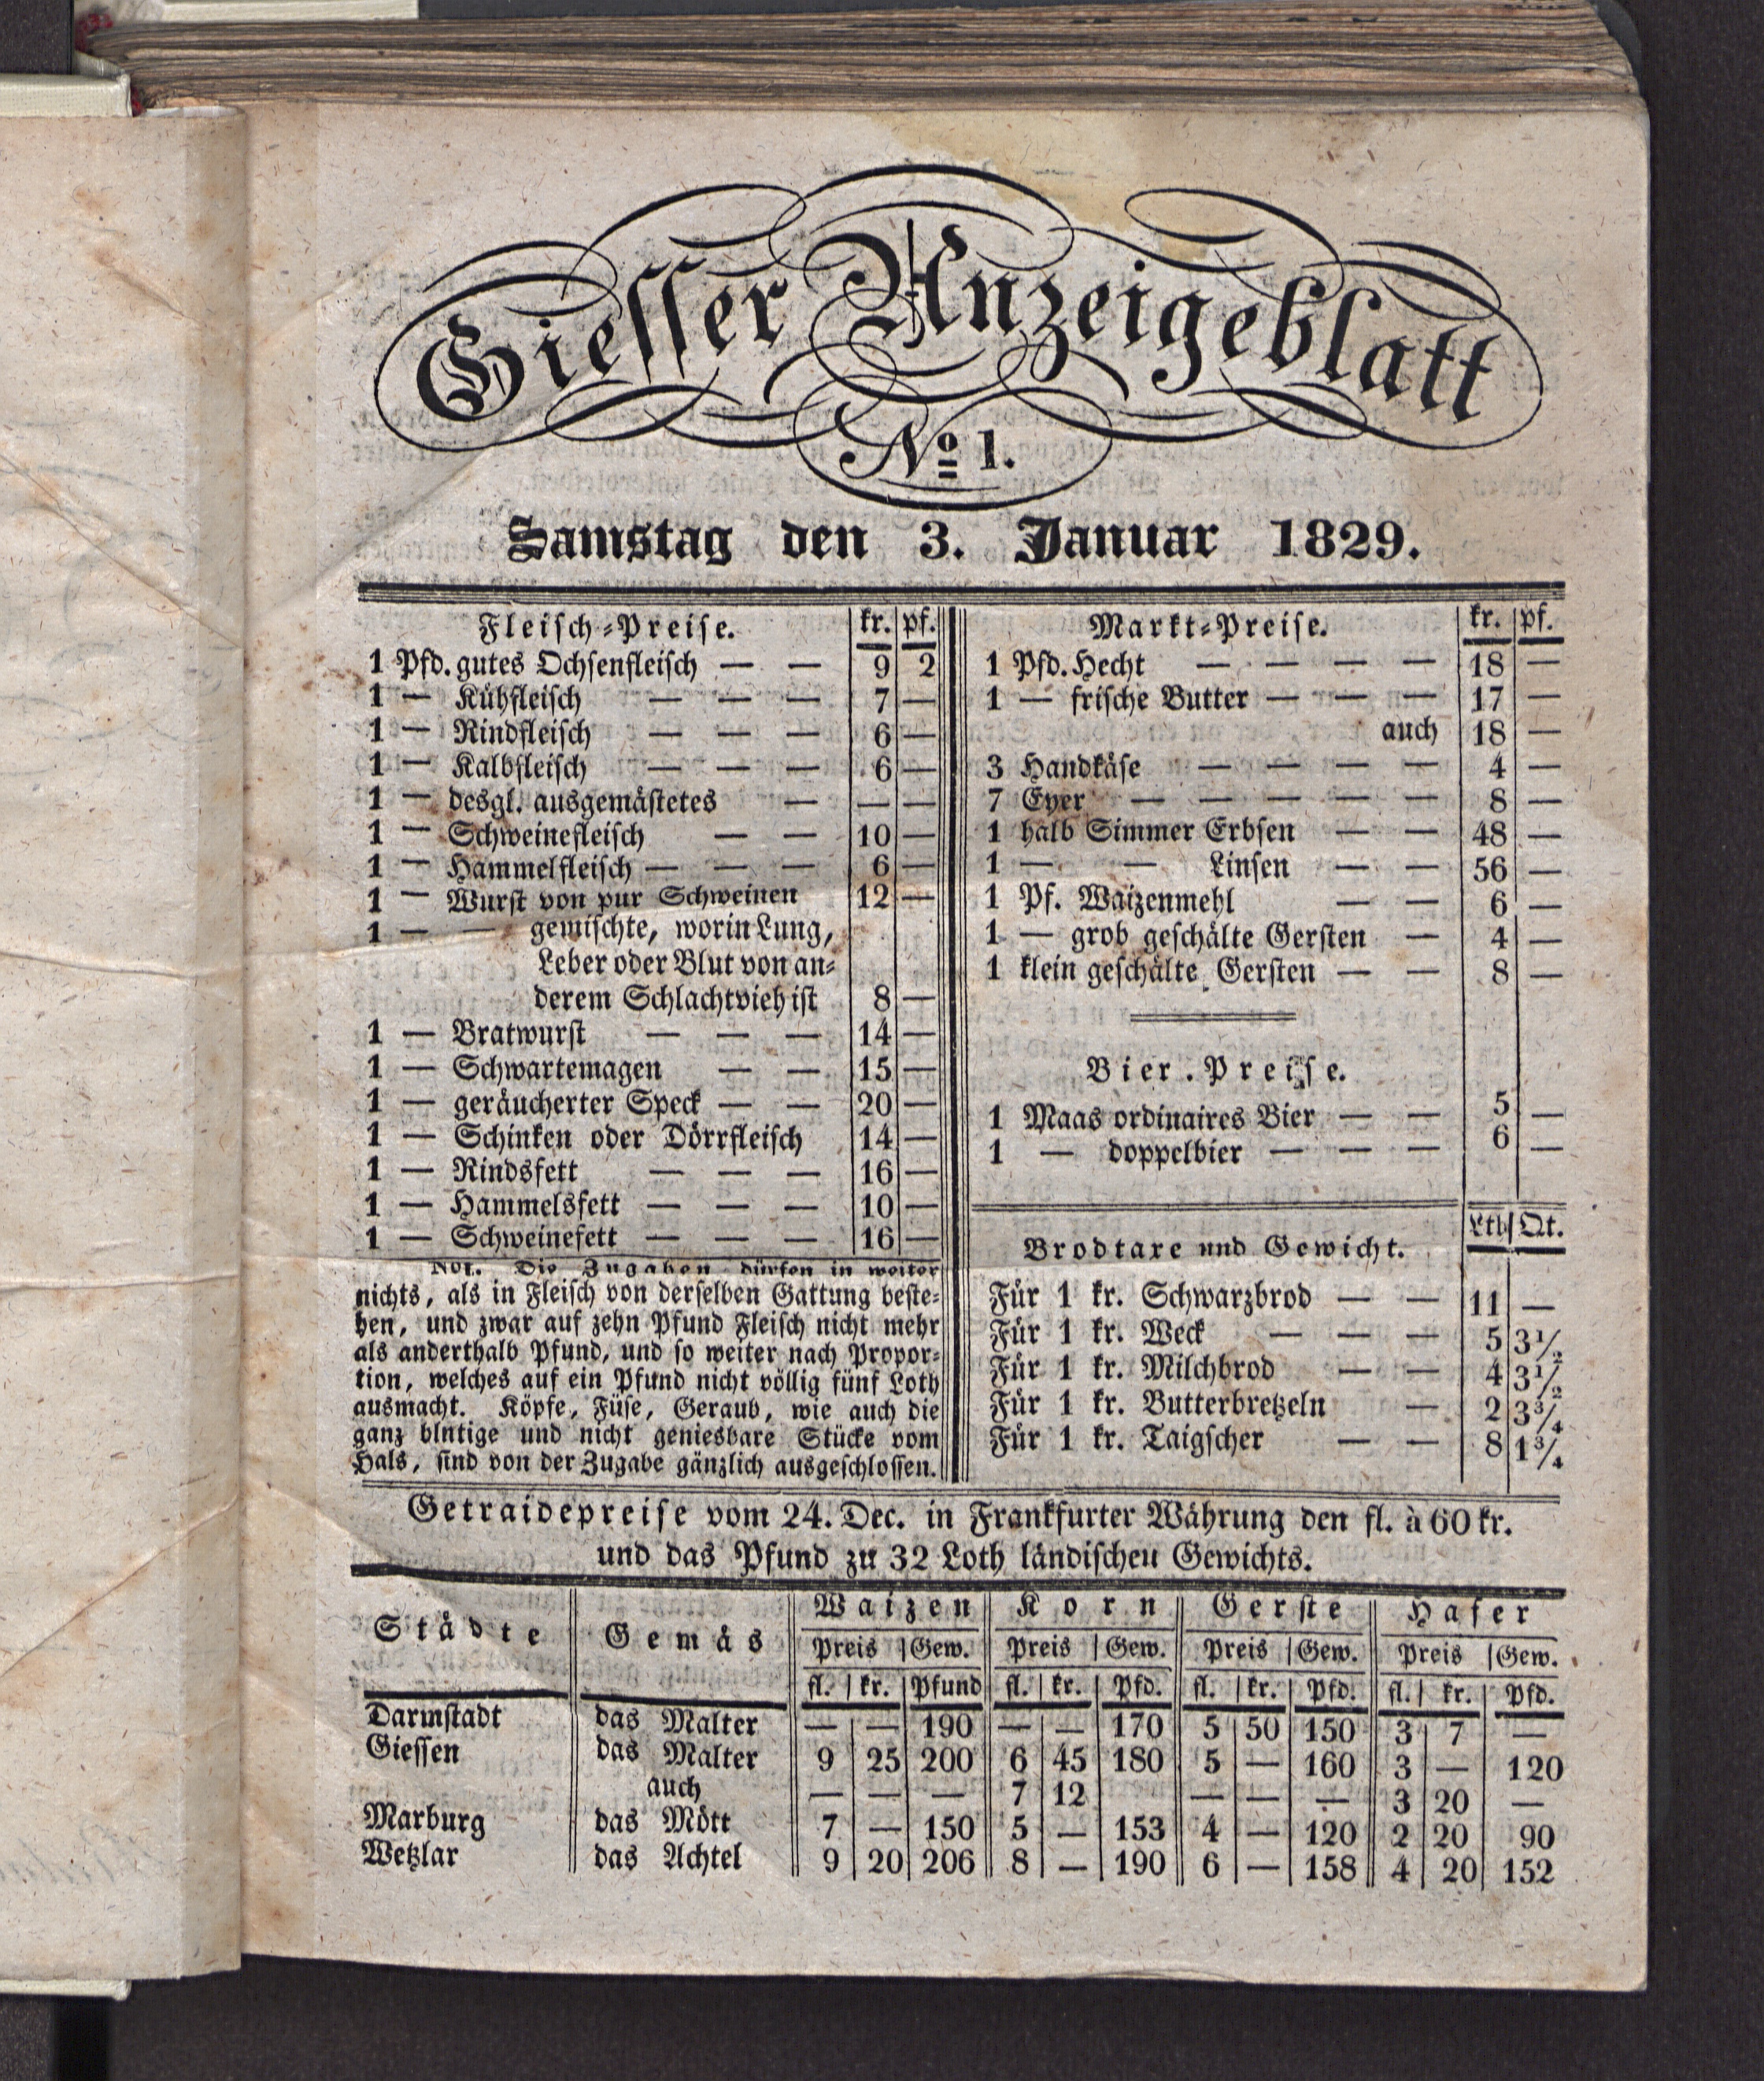 Giesser Anzeigeblatt
No 1.
Samstag den 3. Januar 1829.
Fleisch-Preise. kr. pf.
1 Pfd. gutes Ochsenfleisch — — 9 2
1 — Kühfleisch — — — 7 —
1 — Rindfleisch — — — 6 —
1 — Kalbfleisch — — — 6 —
1 — desgl. ausgemästetes — — —
1 — Schweinefleisch — — 10 —
1 — Hammelfleisch — — — 6 —
1 — Wurst von pur Schweinen 12 —
1 — — gemischte, worin Lung,
Leber oder Blut von an-
derem Schlachtvieh ist 8 —
1 — Bratwurst — — — 14 —
1 — Schwartemagen — — 15 —
1 — geräucherter Speck — — 20 —
1 — Schinken oder Dörrfleisch 14 —
1 — Rindsfett — — — 16 —
1 — Hammelsfett — — — 10 —
1 — Schweinefett — — — 16 —
Not. Die Zugaben dürfen in weiter
nichts, als in Fleisch von derselben Gattung beste-
hen, und zwar auf zehn Pfund Fleisch nicht mehr
als anderthalb Pfund, und so weiter nach Propor-
tion, welches auf ein Pfund nicht völlig fünf Loth
ausmacht. Köpfe, Füse, Geraub, wie auch die
ganz blntige und nicht geniesbare Stücke vom
Hals, sind von der Zugabe gänzlich ausgeschlossen.
Markt-Preise. kr. pf.
1 Pfd. Hecht — — — — 18 —
1 — frische Butter — — — 17 —
auch 18 —
3 Handkäse — — — — 4 —
7 Eyer — — — — — 8 —
1 halb Simmer Erbsen — — 48 —
1 — — Linsen — — 56 —
1 Pf. Waizenmehl — — 6 —
1 — grob geschälte Gersten — 4 —
1 klein geschälte Gersten — — 8 —
Bier.Preise.
1 Maas ordinaires Bier — — 5 —
1 — doppelbier — — — 6 —
Brodtaxe und Gewicht. Lth Qt.
Für 1 kr. Schwarzbrod — — 11 —
Für 1 kr. Weck — — — 5 3 1/2
Für 1 kr. Milchbrod — — 4 3 1/2
Für 1 kr. Butterbretzeln — 2 3 3/4
Für 1 kr. Taigscher — — 8 1 3/4
Getraidepreise vom 24. Dec. in Frankfurter Währung den fl. à 60 kr.
und das Pfund zu 32 Loth ländischen Gewichts.
Städte Gemäs Waizen Korn Gerste Hafer
Preis Gew. Preis Gew. Preis Gew. Preis Gew.
fl. kr. Pfund fl. kr. Pfd. fl. kr. Pfd. fl. kr. Pfd.
Darmstadt das Malter — — 190 — — 170 5 50 150 3 7 —
Giessen das Malter 9 25 200 6 45 180 5 — 160 3 — 120
auch — — — 7 12 — — — 3 20 —
Marburg das Mött 7 — 150 5 — 153 4 — 120 2 20 90
Wetzlar das Achtel 9 20 206 8 — 190 6 — 158 4 20 152